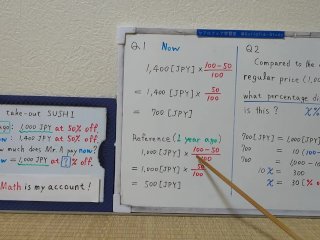 take-out SUSHI
ago: 1,000 JPY at 50% off.
now: 1,400 JPY at 50% off.
how much does Mr. A pay now?
1,000 JPY at ? % off.
Math is my account!
Q1 Now
1,400[JPY]×100-50/100
=1,400[JPY]×50/100
=700[JPY]
Reference (1 year ago)
1,000[JPY]×100-50/100
=1,000[JPY]×50/100
=500[JPY]
Q2
Compared to the
regular price (1,0
what percentage di
is this? x%
700[JPY]=1,000[
700 =10(100
10x =1,000-
10x =300
x =30(%